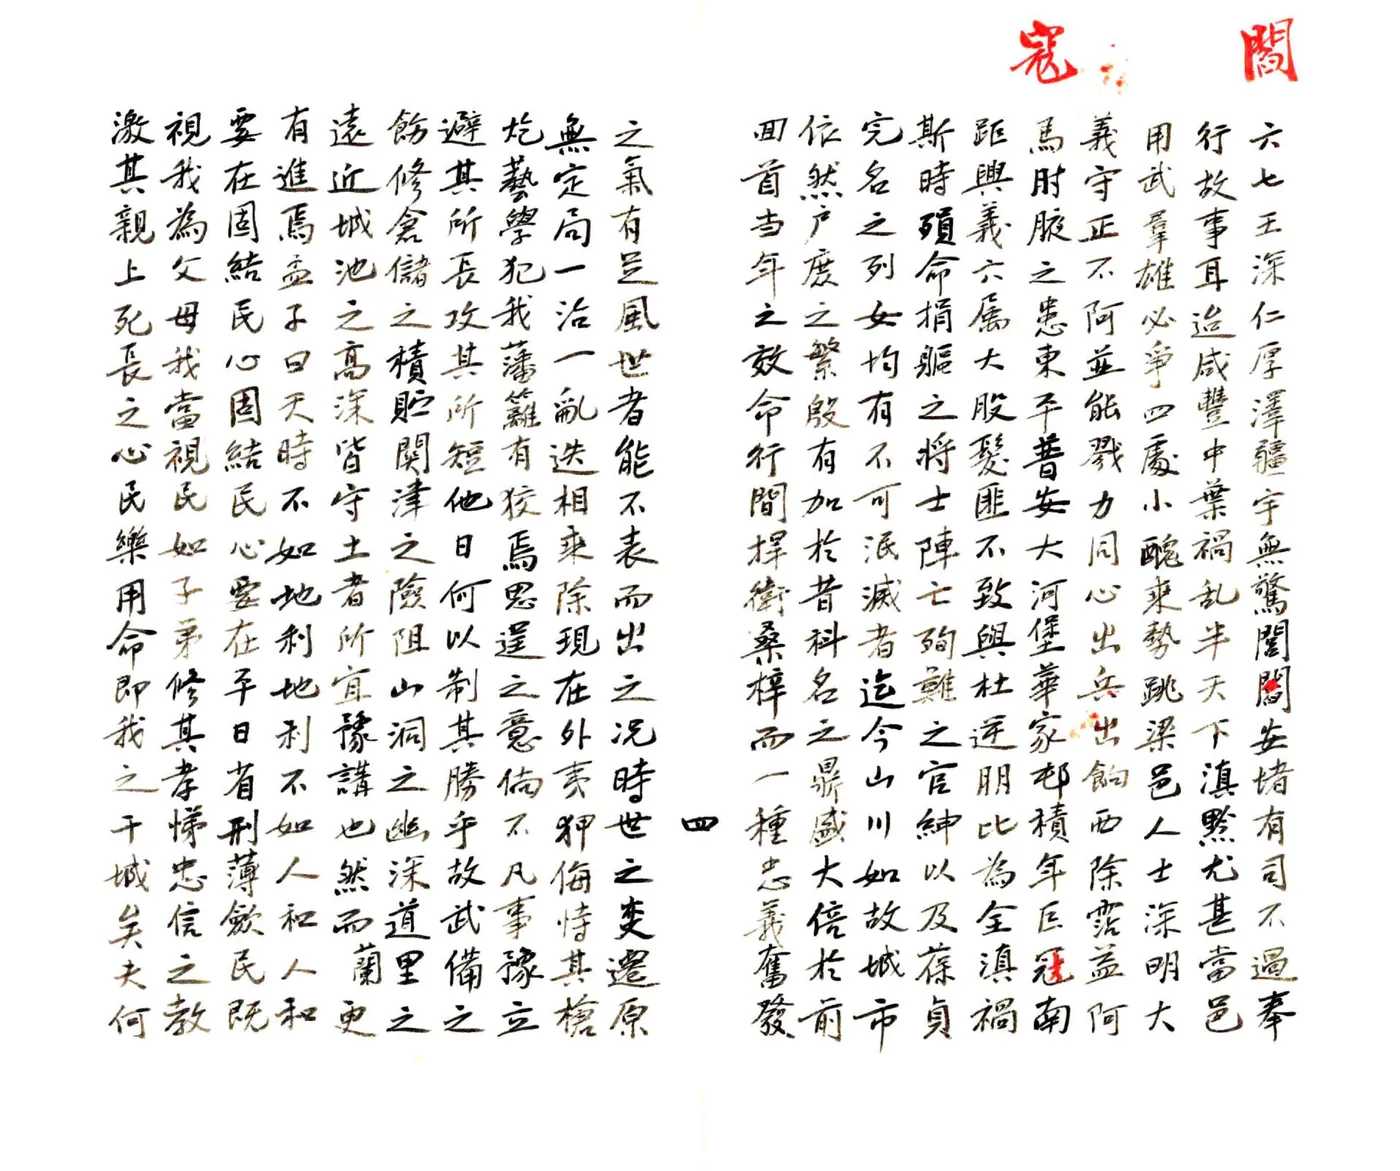 閻
寇
六七王深仁厚澤疆宇無驚閭閻安堵有司不過奉
行故事耳迨咸豐中葉禍乱半天下滇黔尤甚當邑
用武羣雄必爭四處小醜乘勢跳梁邑人士深明大
義守正不阿並能戮力同心出兵出餉西除霑益阿
馬肘腋之患東平普安大河堡華家屯積年巨寇南
距興義六属大股髮匪不致與杜逆朋比為全滇禍
斯時殞命捐軀之將士陣亡殉難之官紳以及葆貞
完名之列女均有不可泯滅者迄今山川如故城市
依然户度之繁殷有加於昔科名之鼎盛大倍於前
囬首当年之效命行間捍衛桑梓而一種忠義奮發
四
之氣有足風世者能不表而出之况時世之变遷原
無定局一治一亂迭相乘除現在外夷狎侮恃其槍
炮藝學犯我藩籬有狡焉思逞之意倘不凡事豫立
避其所長攻其所短他日何以制其勝乎故武備之
飭修倉儲之積貯関津之險阻山洞之幽深道里之
遠近城池之高深皆守土者所宜豫講也然而蘭更
有進焉孟子曰天時不如地利地利不如人和人和
要在固結民心固結民心要在平日省刑薄歛民既
視我為父母我當視民如子弟修其孝悌忠信之教
激其親上死長之心民樂用命即我之干城矣夫何